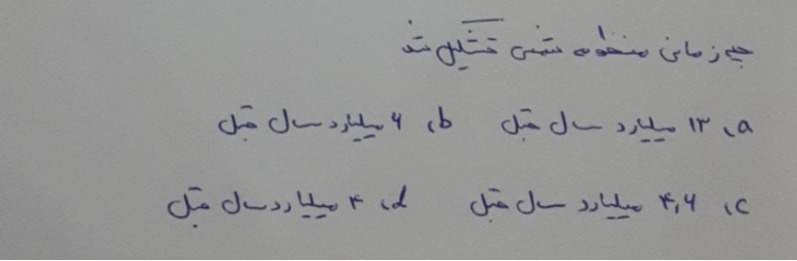 چه زمانی منظومه شمسی تشکیل شد
a، ۱۳ میلیارد سال قبل b، ۶ میلیارد سال قبل
c، ۴,۶ میلیارد سال قبل d، ۴ میلیارد سال قبل